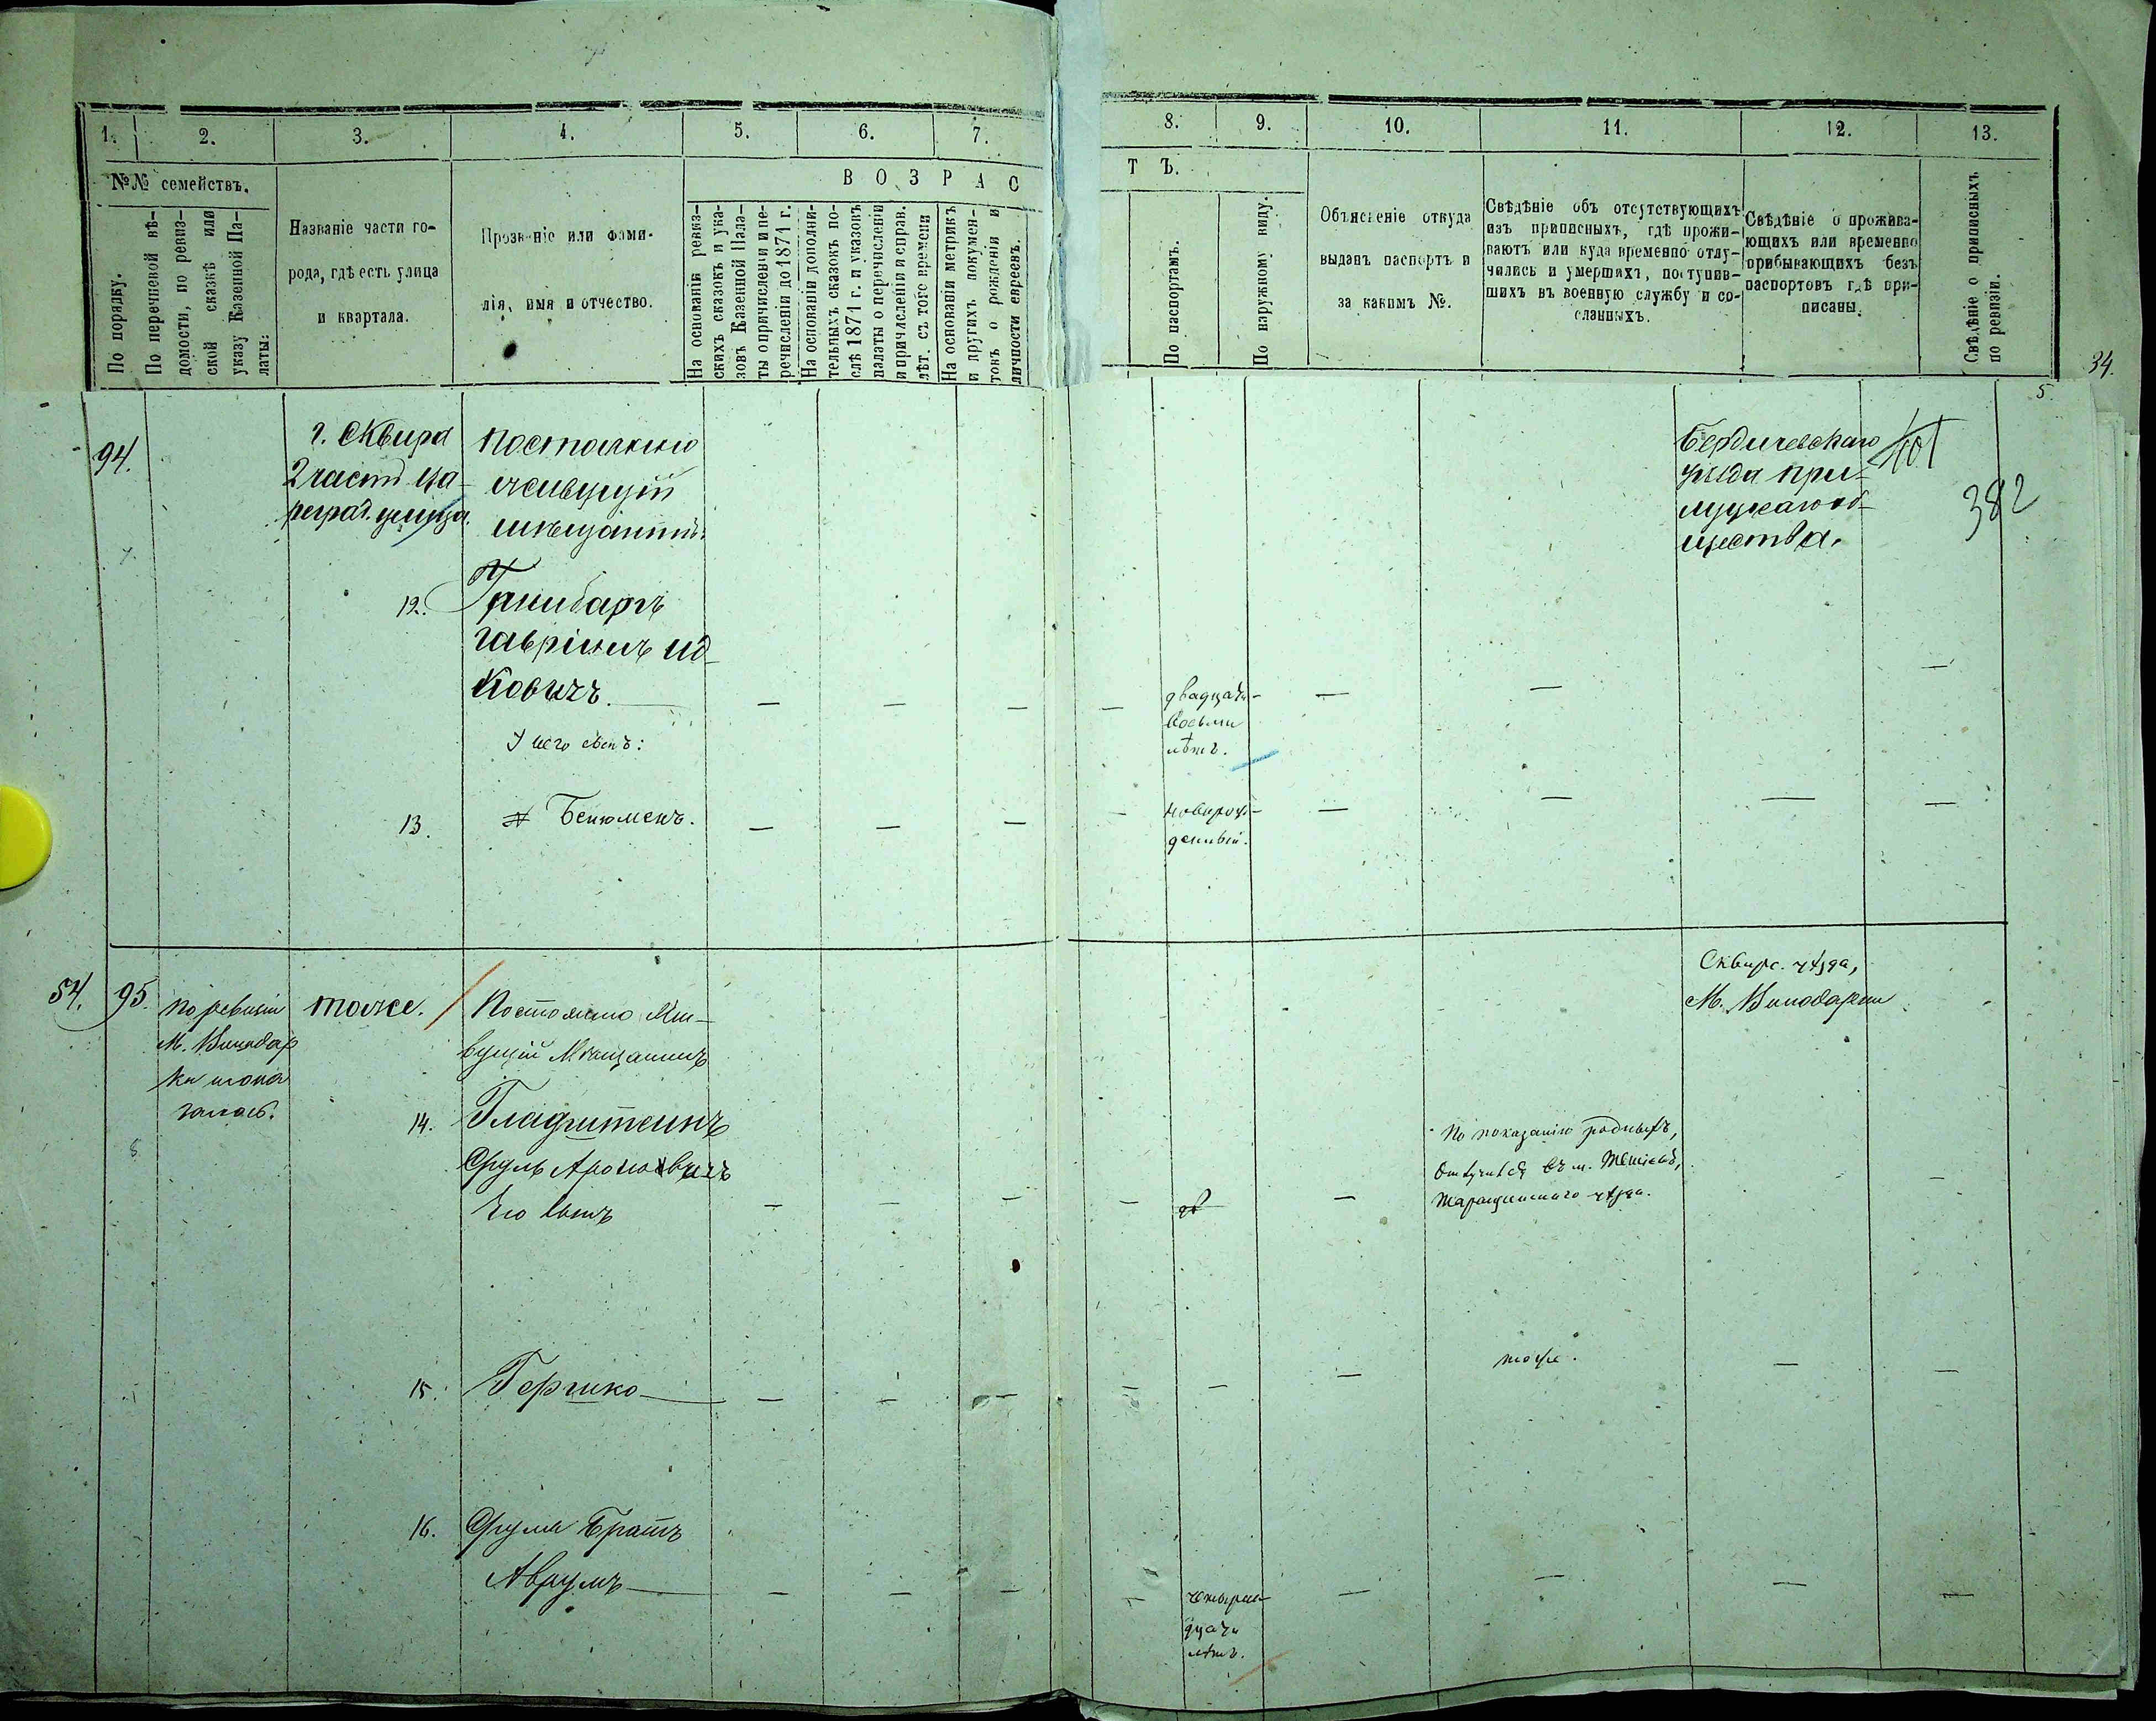 1. 2. 3. 4. 5. 6. 7. 8. 9. 10. 11. 12. 13.
№№ семействъ.
По порядку.
По перечневой вѣ-
домости, по ревиз-
ской сказкѣ или
указу Казенной Па-
латы:
Названіе части го-
рода, гдѣ есть улица
и квартала.
Прозваніе или фами-
лія, имя и отчество.
ВОЗРАС
ТЪ.
На основаніи ревиз-
скихъ сказокъ и ука-
зовъ Казенной Пала-
ты о причисленіи и пе-
речисленіи до 1871 г.
На основаніи дополни-
тельныхъ сказокъ по-
слѣ 1871 г. и указовъ
палаты о перечисленіи
и причисленіи и справ.
лѣт. съ того времени
На основаніи метрикъ
и другихъ докумен-
товъ о рожденіи и
личности евреевъ.
По паспортамъ.
По наружному виду.
Объясненіе откуда
выданъ паспортъ и
за какимъ №.
Свѣдѣніе объ отсутствующихъ
изъ приписныхъ, гдѣ прожи-
ваютъ или куда временно отлу-
чились и умершихъ, поступив-
шихъ въ военную службу и со-
сланныхъ.
Свѣдѣніе о прожива-
ющихъ или временно
прибывающихъ безъ
паспортовъ гдѣ при-
писаны.
Свѣдѣніе о приписныхъ
по ревизіи.
34.
5
94.
г. Сквира
2 части
улица.
Постоянно
живущій
мѣщанинъ:
12. Гринбаргъ
Гавріилъ Ид-
ковичъ.
двадцать
восьми
лѣтъ.
Бердичевскаго
уѣзда При-
лукаго об-
щества.
101
382
У него сынъ:
13. Бенюменъ.
новорож-
денный.
54. 95.
По ревизіи
М. Винодар
ки
тоже.
Постоянно Жи-
вущій Мѣщанинъ
14. Гладштейнъ
Сруль Ароновичъ
Его сынъ
По показанію родныхъ,
отлучился въ м. Тетіевъ,
Таращанскаго уѣзда.
Сквирс. уѣзда,
М. Винодарки
15. Гершко
тоже.
16. Сруля Братъ
Аврумъ
четырнад-
цати
лѣтъ.